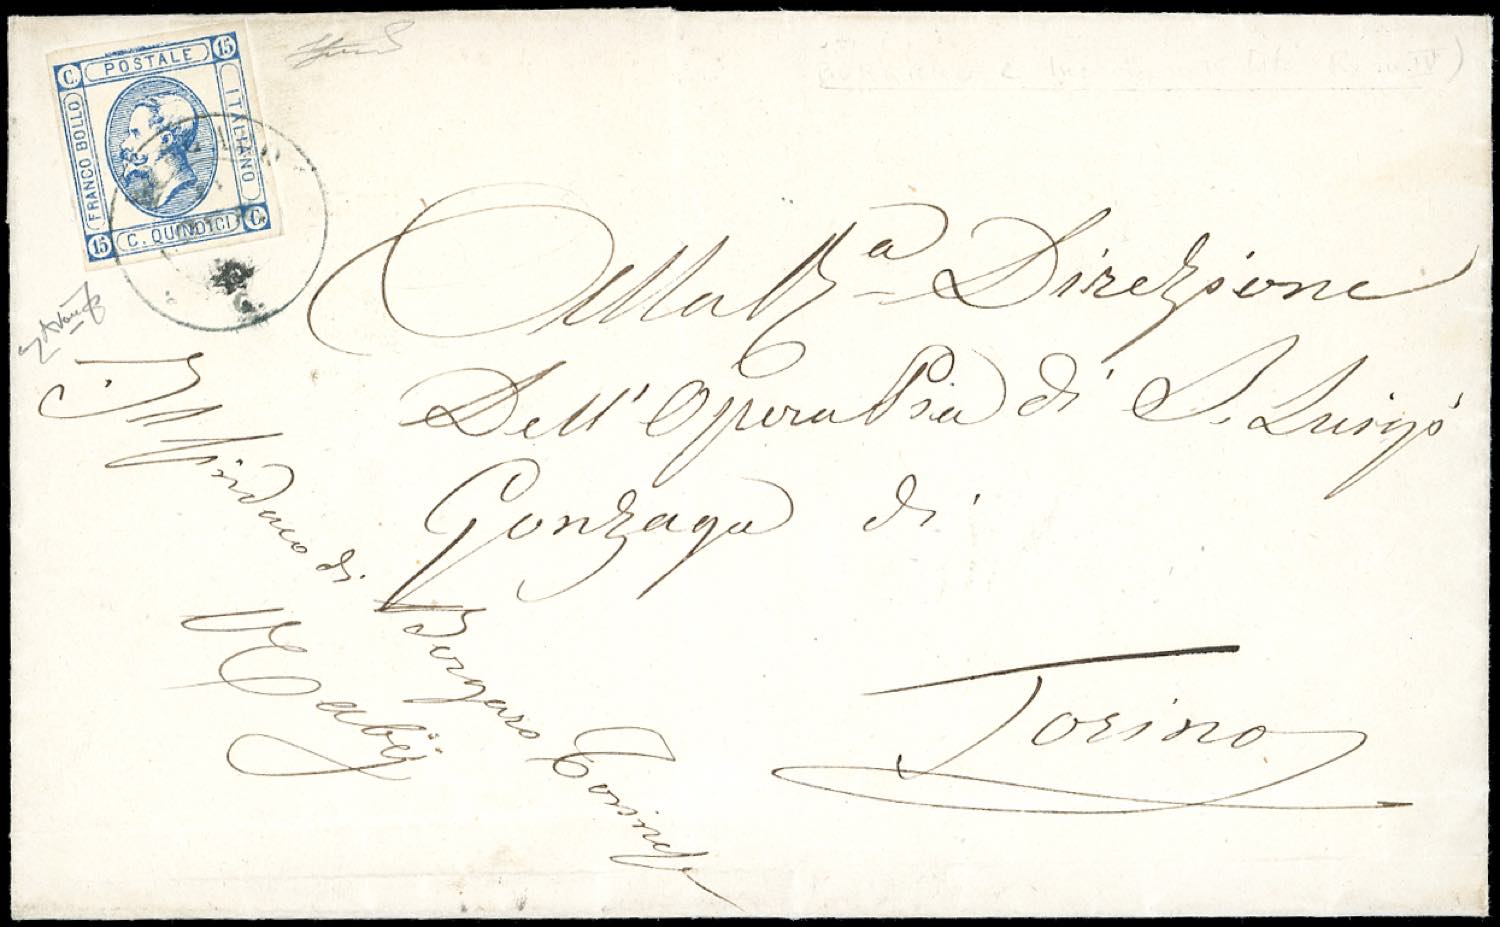 C. POSTALE 15
FRANCO BOLLO
ITALIANO
15 C. QUINDICI C.
Alla
Direzione
Dell'Opera Pia di S. Luigi
Gonzaga di
Torino
Il Sindaco di Borgaro Torinese